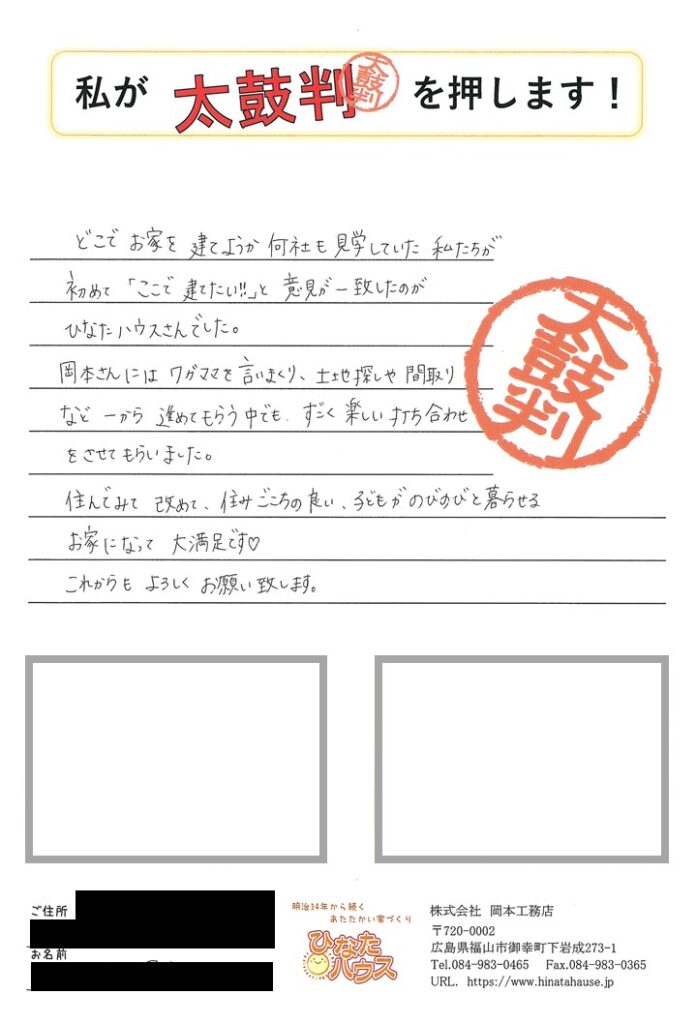 私が 太鼓判 太鼓判 を押します！
どこで お家を 建てようか 何社も 見学していた 私たちが
初めて 「ここで 建てたい!!」と 意見が 一致したのが
ひなたハウスさんでした。
太鼓判
岡本さんには ワガママを 言いまくり、土地探しや 間取り
など 一から 進めてもらう 中でも、すごく 楽しい 打ち合わせ
をさせてもらいました。
住んでみて 改めて、住みごこちの良い、子どもがのびのびと暮らせる
お家になって 大満足です♡
これからも よろしく お願い致します。
ご住所
お名前
明治34年から続く
あたたかい家づくり
ひなた
ハウス
株式会社 岡本工務店
〒720-0002
広島県福山市御幸町下岩成273-1
Tel.084-983-0465 Fax.084-983-0365
URL. https://www.hinatahause.jp